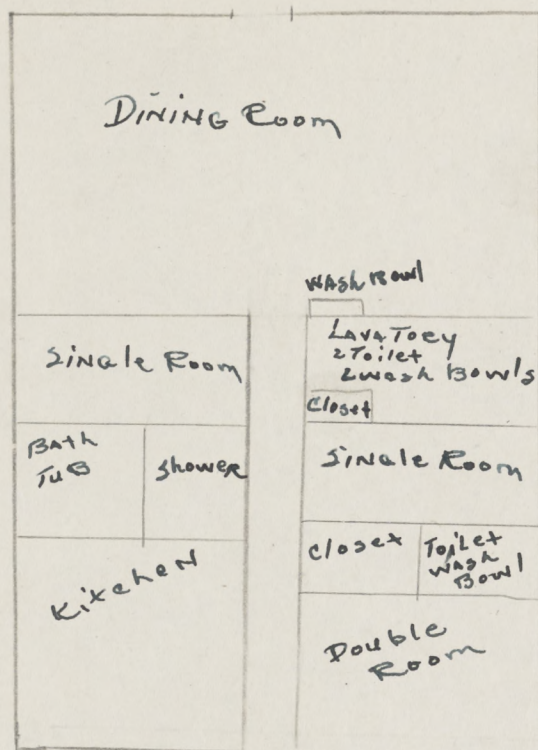 Dining Room
Wash Bowl
Lavatoey
2 Toilet
2 Wash Bowls
Closet
Single Room
Bath
Tub
Shower
Single Room
Closet
Toilet
Wash
Bowl
Kitchen
Double
Room